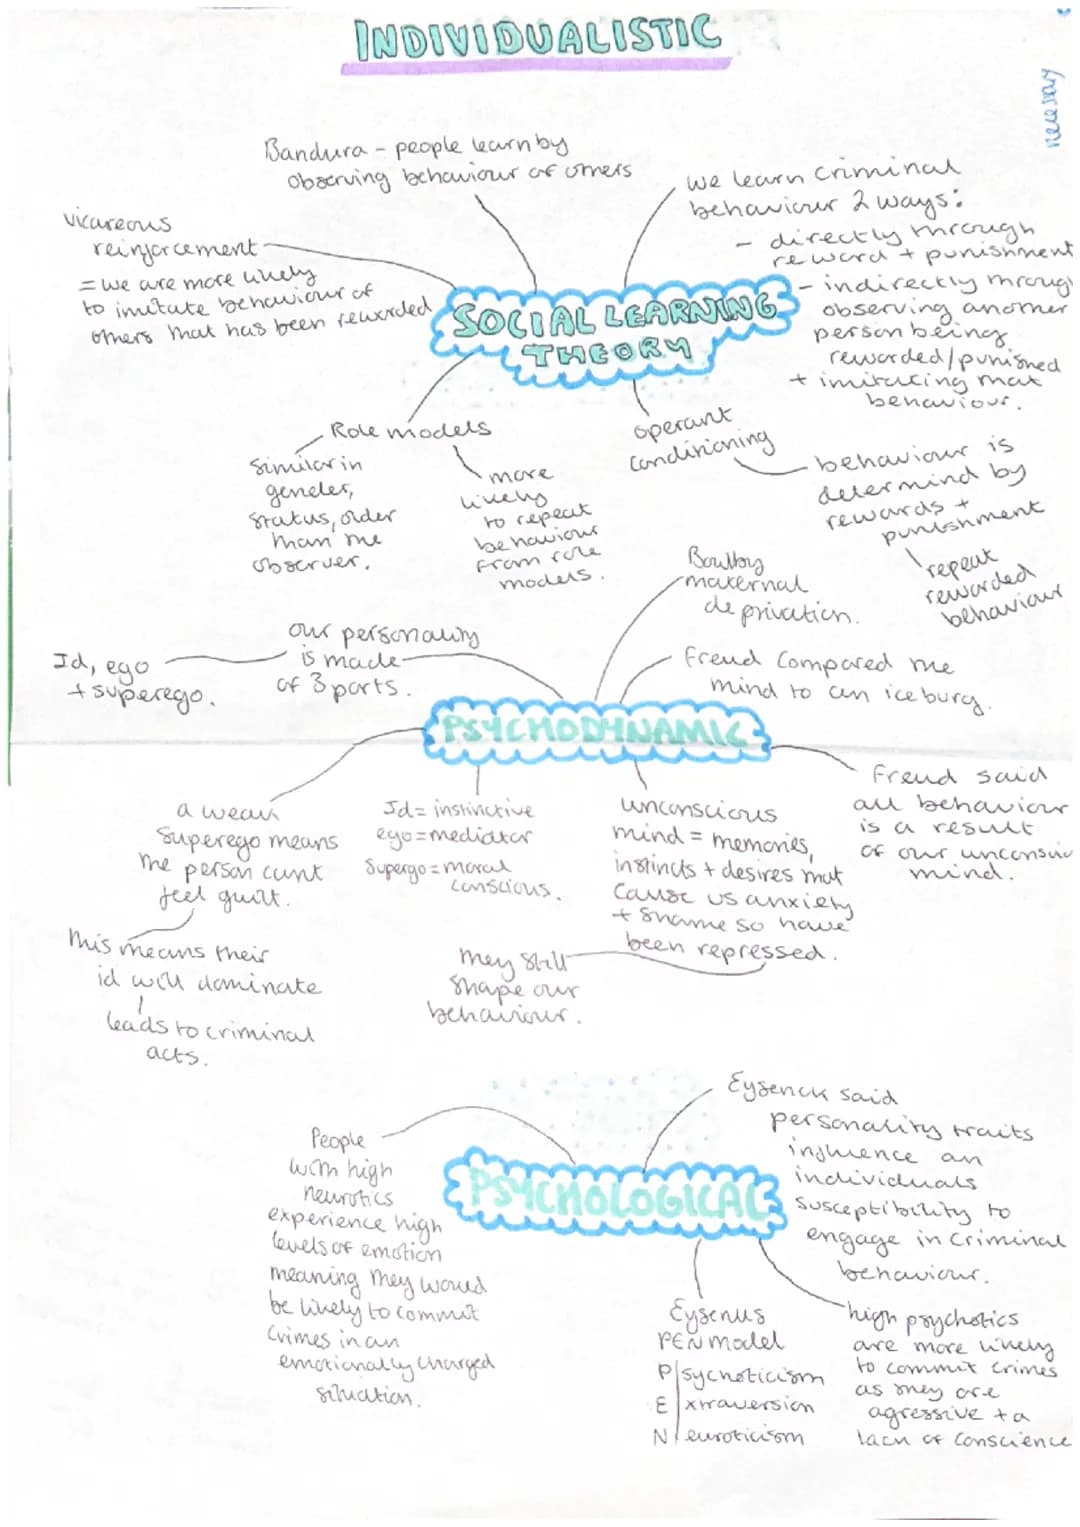 INDIVIDUALISTIC
necessary
Bandura - people learn by
observing behaviour of others
we learn criminal
behaviour 2 ways:
- directly through
reward + punishment
- indirectly through
observing another
person being
rewarded/punished
+ imitating that
behaviour.
vicareous
reinforcement
= we are more likely
to imitate behaviour of
others that has been rewarded
SOCIAL LEARNING
THEORY
Role models
similar in
gender,
status, older
than the
observer.
more
likely
to repeat
behaviour
from role
models.
operant
conditioning
behaviour is
determind by
rewards +
punishment
repeat
rewarded
behaviour
Bowlby
maternal
deprivation.
our personality
is made
of 3 parts.
Id, ego
+ superego.
Freud compared the
mind to an iceburg.
PSYCHODYNAMIC
Freud said
all behaviour
is a result
of our unconscio
mind.
a weak
superego means
the person cant
feel guilt.
this means their
id will dominate
leads to criminal
acts.
Id = instinctive
ego = mediator
Supergo = moral
conscious.
unconscious
mind = memories,
instincts + desires that
cause us anxiety
+ shame so have
been repressed.
they still
shape our
behaviour.
Eysenck said
personality traits
influence an
individuals
susceptibility to
engage in criminal
behaviour.
PSYCHOLOGICAL
People
with high
neurotics
experience high
levels of emotion
meaning they would
be likely to commit
crimes in an
emotionally charged
situation.
PEN model
P sychoticism
E xtraversion
N euroticism
high psychotics
are more likely
to commit crimes
as they are
agressive + a
lack of conscience